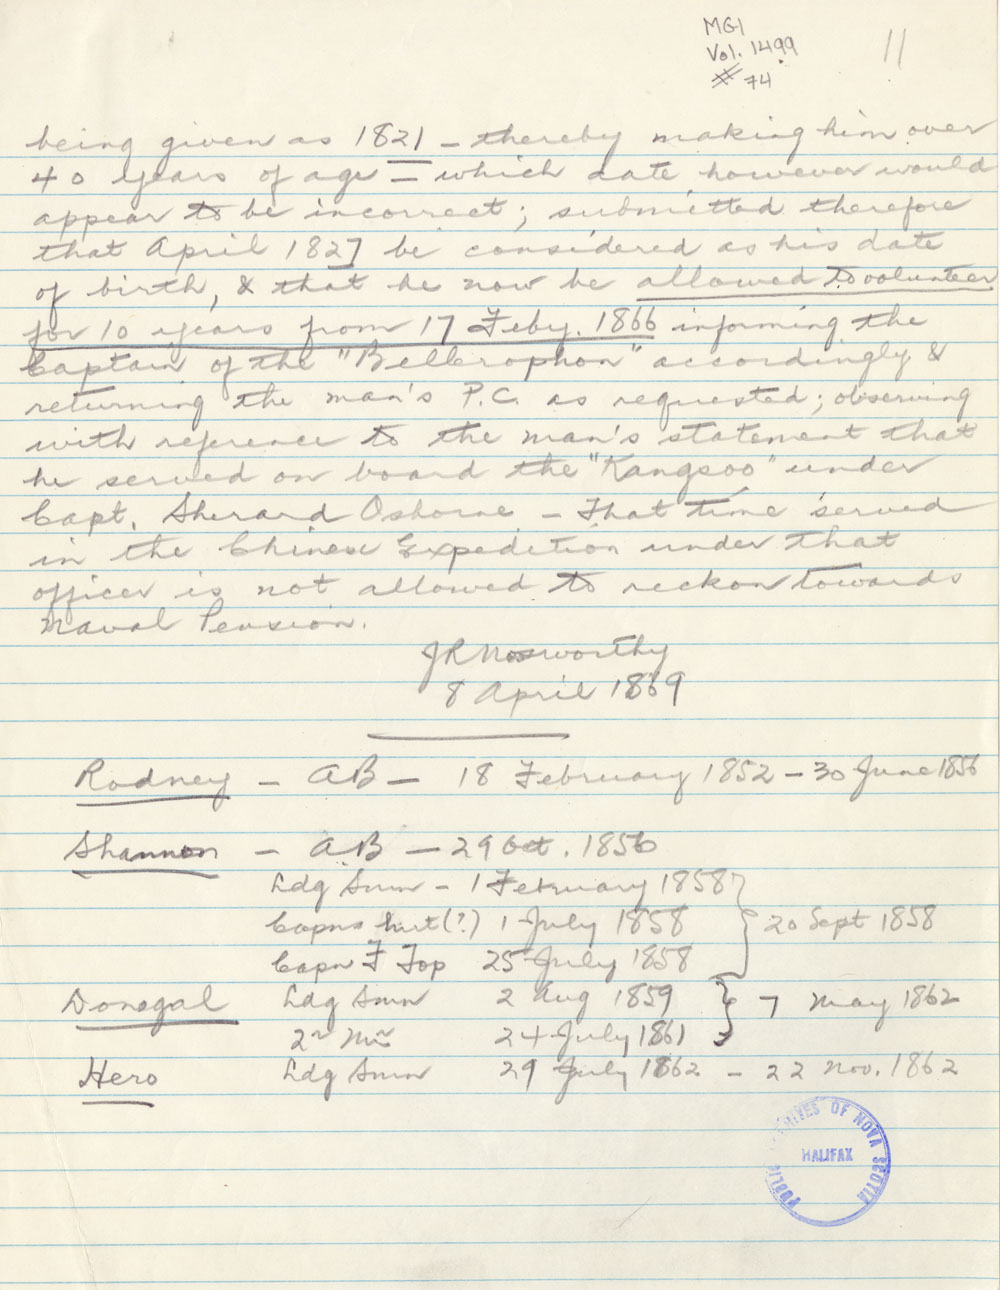 MG1
Vol. 1499
# 74
11
being given as 1821 — thereby making him over
40 years of age — which date however would
appear to be incorrect; submitted therefore
that April 1827 be considered as his date
of birth, & that he now be allowed to volunteer
for 10 years from 17 Feby. 1866 informing the
Captain of the "Bellerophon" accordingly &
returning the man's P.C. as requested; observing
with reference to the man's statement that
he served on board the "Kangsoo" under
Capt. Sherard Osborne — That time served
in the Chinese Expedition under that
officer is not allowed to reckon towards
Naval Pension.
JR Nosworthy
8 April 1869
Rodney — AB — 18 February 1852 — 30 June 1856
Shannon — AB — 29 Oct. 1856
Ldg Smn — 1 February 1858
Capns hut (?) 1 July 1858 } 20 Sept 1858
Capn F Top 25 July 1858
Donegal Ldg Smn 2 Aug 1859 } 7 May 1862
24 July 1861
Hero Ldg Smn 29 July 1862 — 22 Nov. 1862
PUBLIC ARCHIVES OF NOVA SCOTIA
HALIFAX